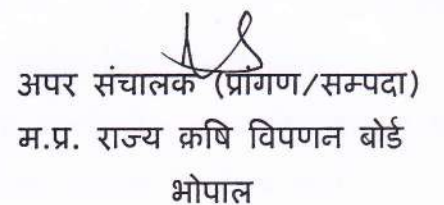 अपर संचालक (प्रांगण/सम्पदा)
म.प्र. राज्य क्रषि विपणन बोर्ड
भोपाल